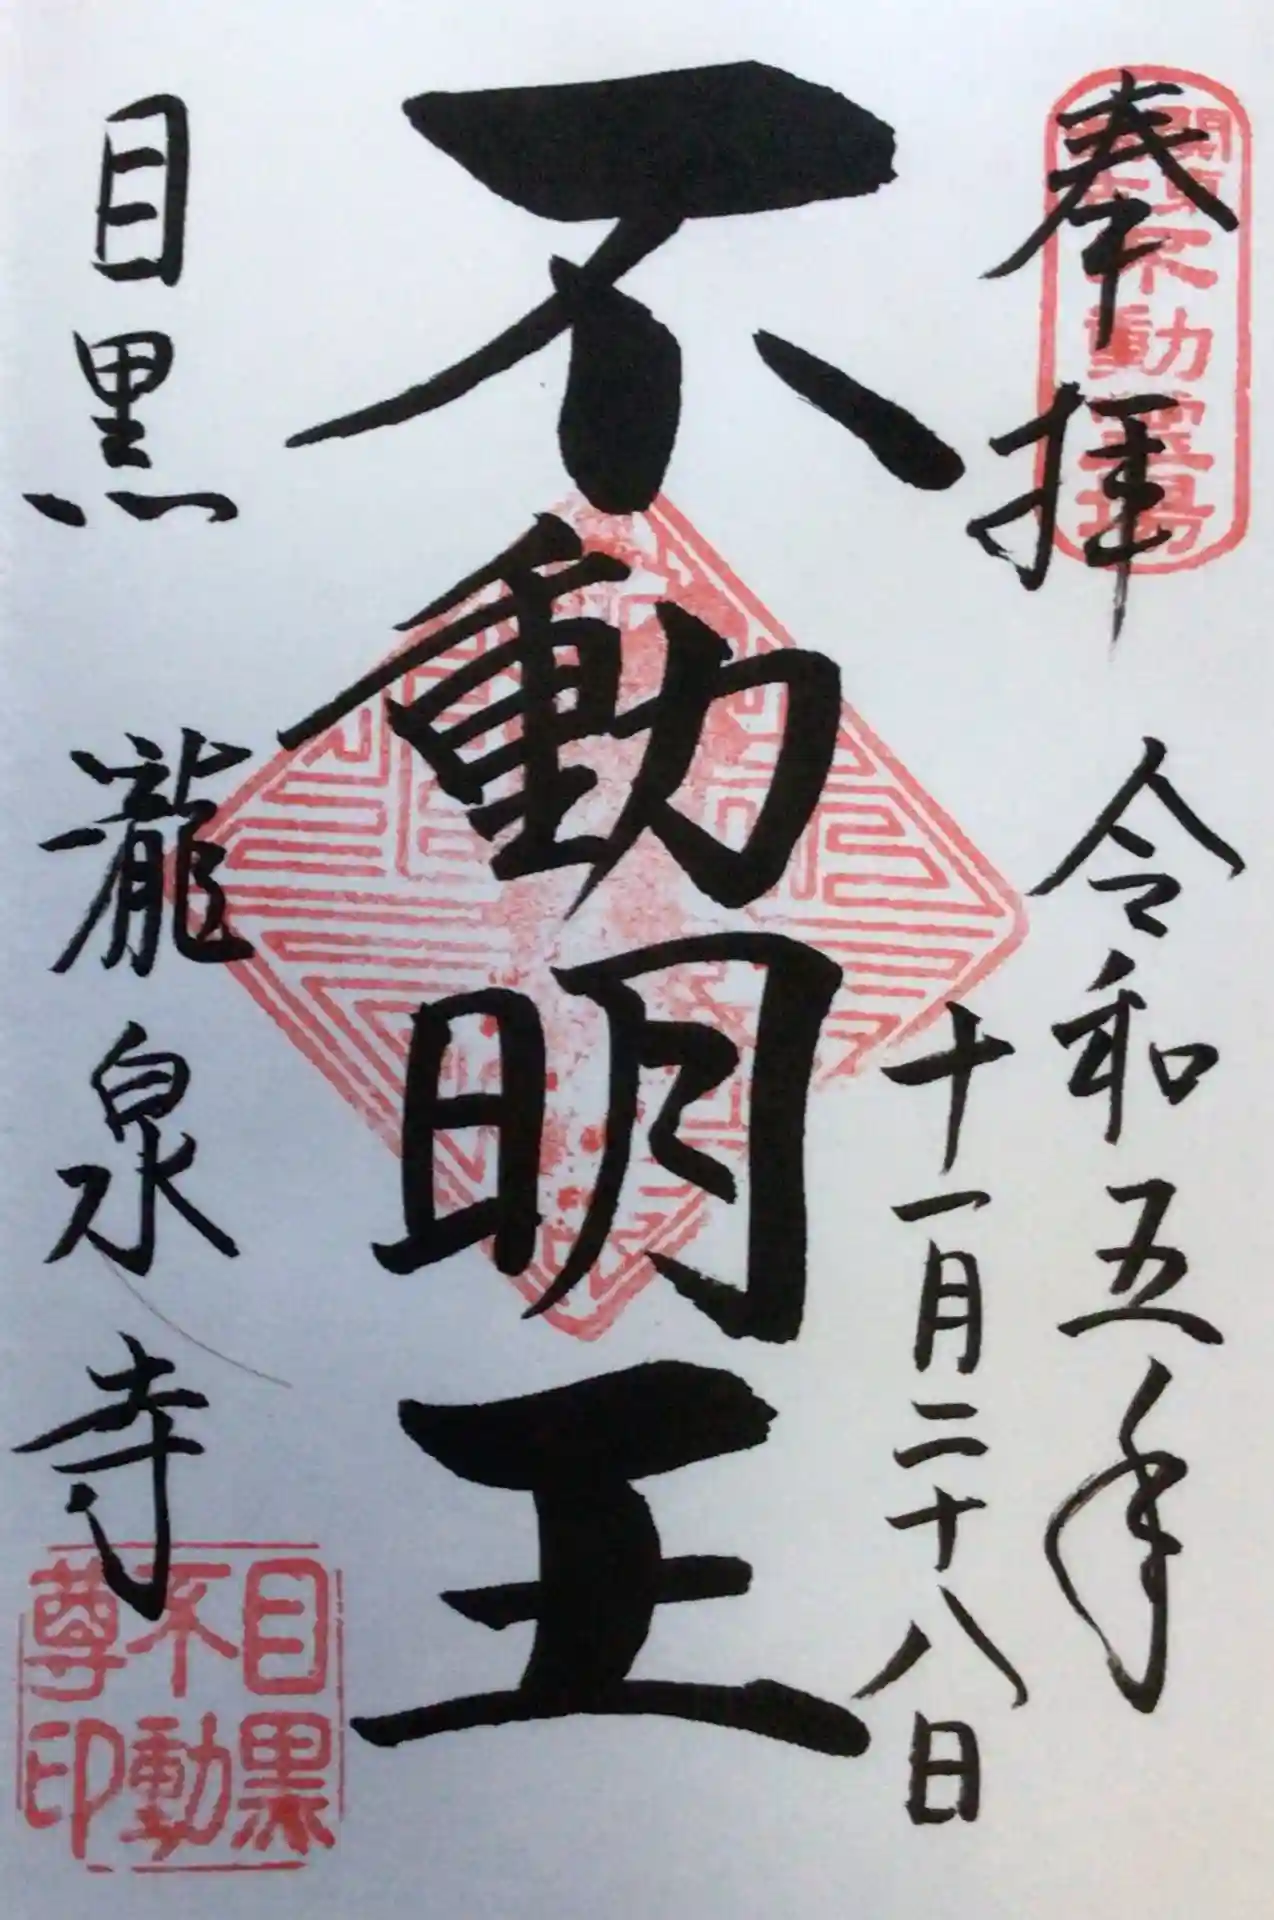 奉拝
関東不動霊場
令和五年
十一月二十八日
不動明王
目黒 瀧泉寺
目黒
不動
尊印